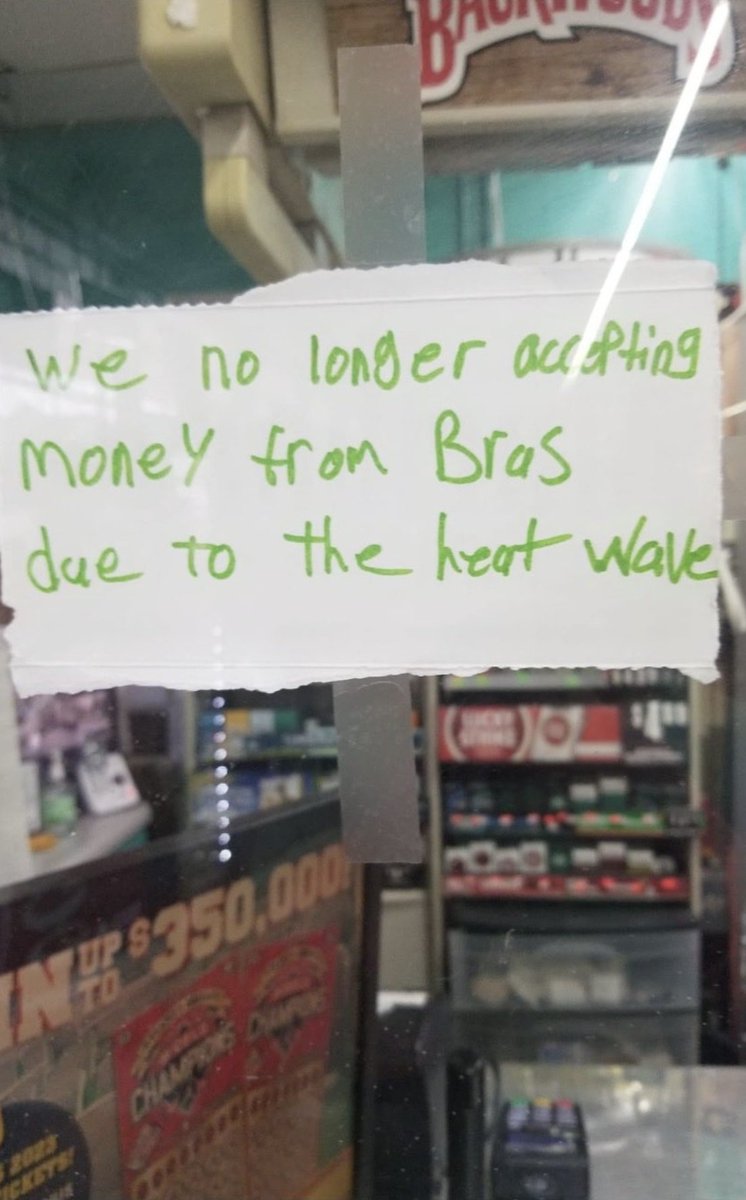 BACKWOODS
we no longer accepting
money from Bras
due to the heat wave
LUCKY
STRIKE
UP
TO $350,000!
CHAMPIONS
CHAMPIONS
2023